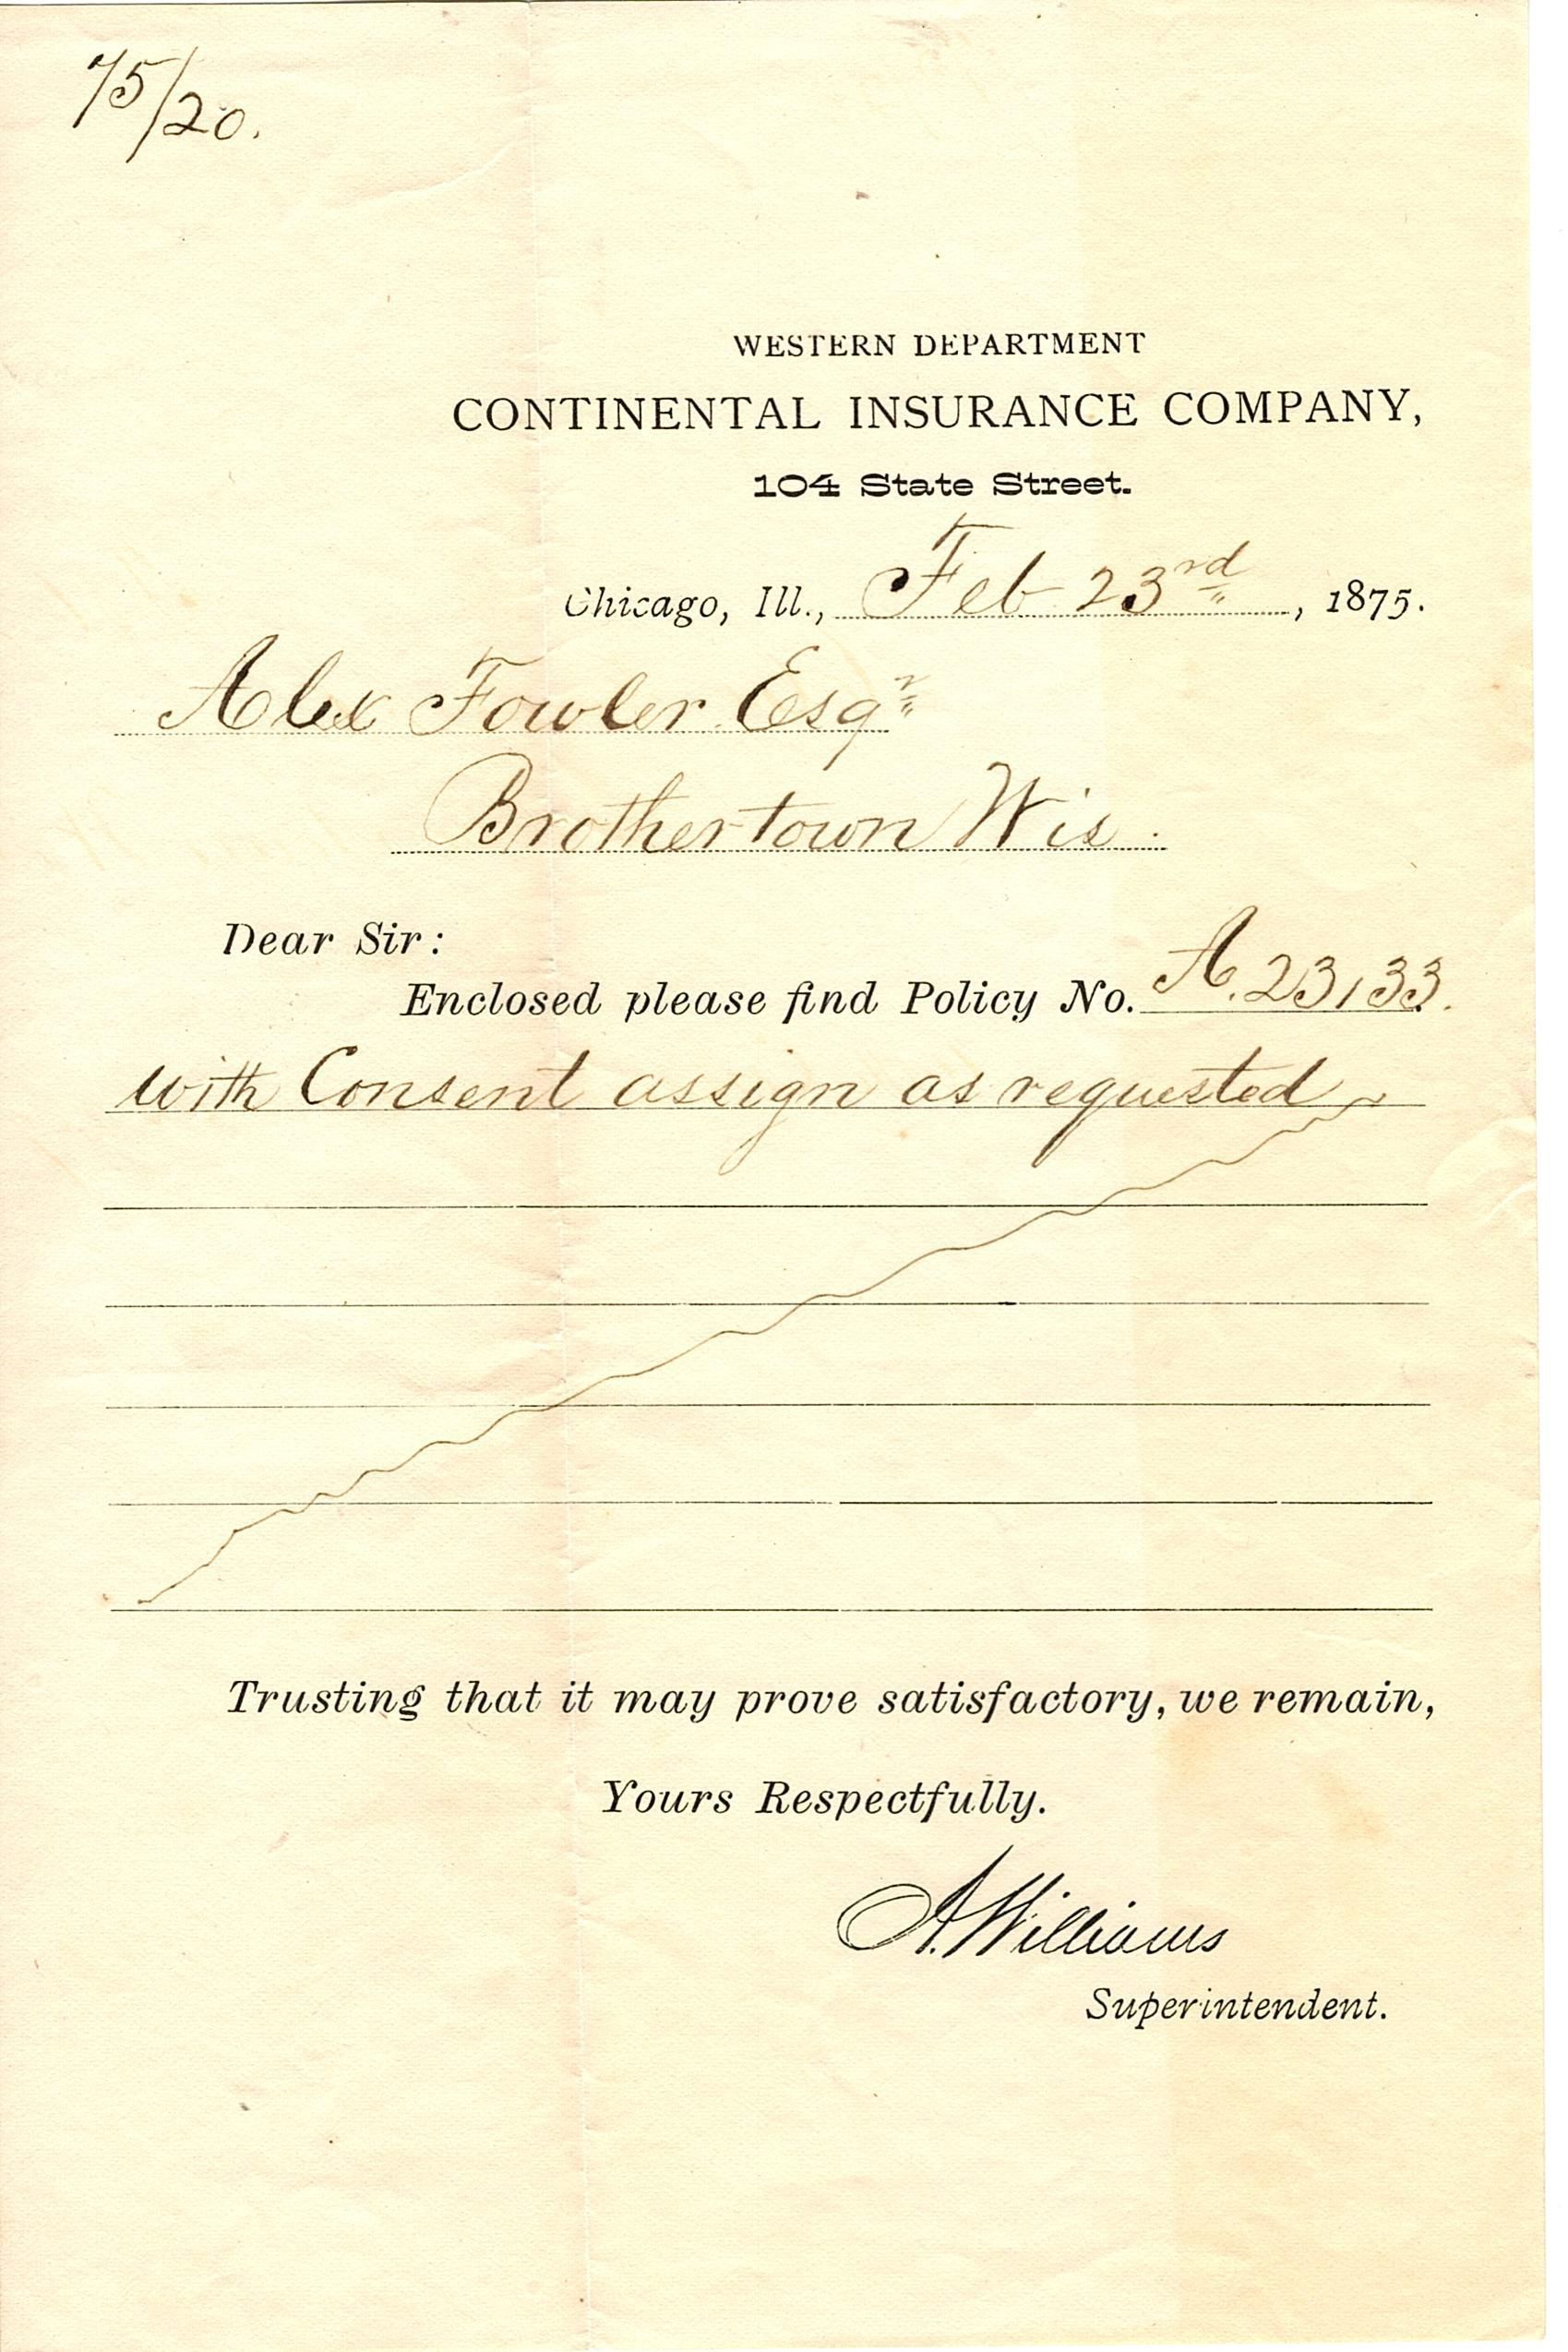 75/20.
WESTERN DEPARTMENT
CONTINENTAL INSURANCE COMPANY,
104 State Street.
Chicago, Ill., Feb 23rd, 1875.
Alex Fowler Esqr
Brothertown Wis.
Dear Sir:
Enclosed please find Policy No. A. 23133.
with Consent assign as requested
Trusting that it may prove satisfactory, we remain,
Yours Respectfully.
A. Williams
Superintendent.